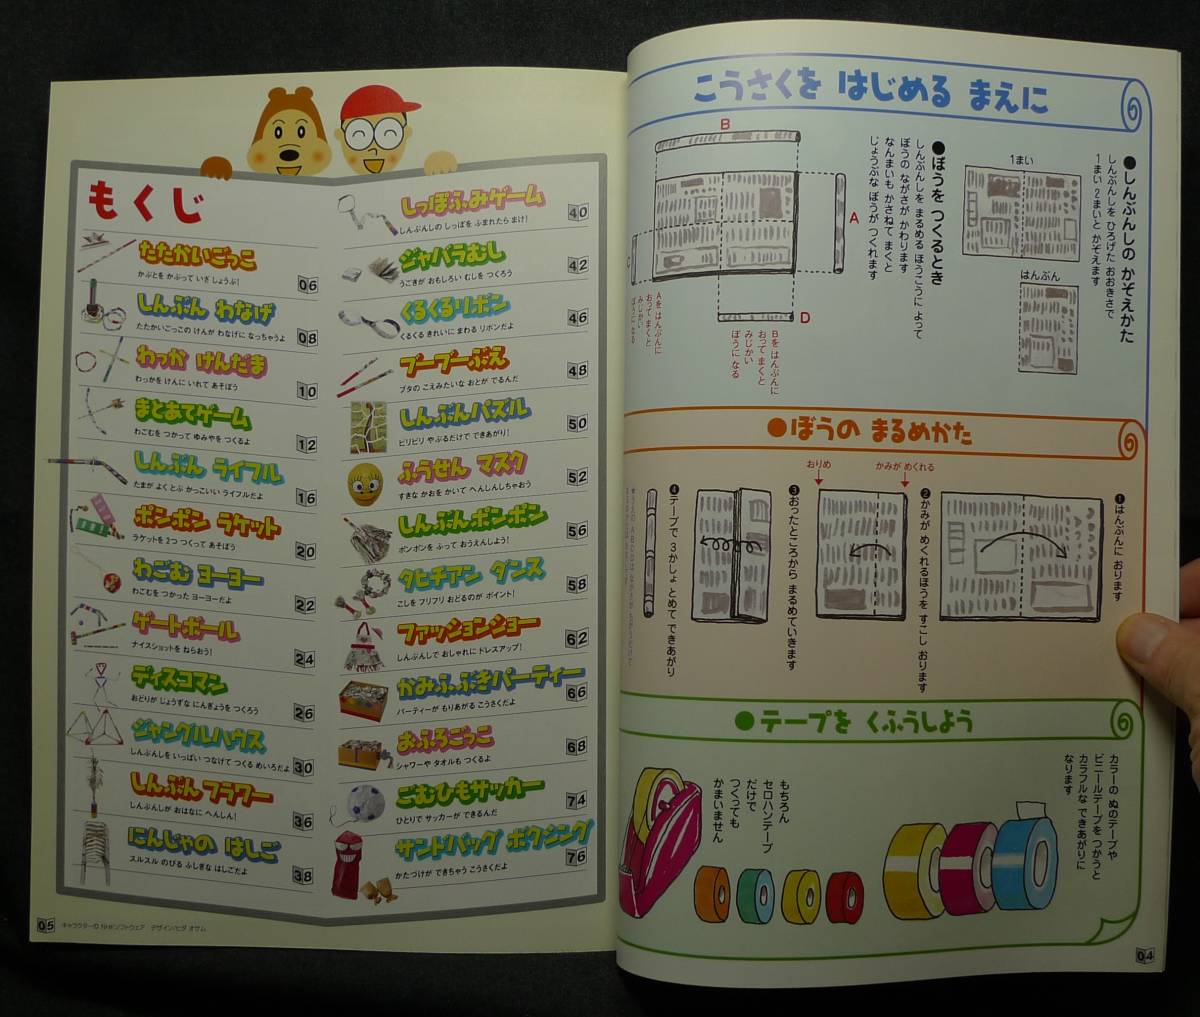 こうさくを はじめる まえに
●しんぶんしの かぞえかた
しんぶんしを ひろげた おおきさで
1まい 2まいと かぞえます
1まい
はんぶん
●ぼうを つくるとき
しんぶんしを まるめる ほうこうに よって
ぼうの ながさが かわります
なんまいも かさねて まくと
じょうぶな ぼうが つくれます
B
A
C
D
Bを はんぶんに
おって まくと
みじかい
ぼうに なる
Aを はんぶんに
おって まくと
みじかい
ぼうに なる
●ぼうの まるめかた
❶はんぶんに おります
❷かみが めくれるほうを すこし おります
かみが めくれる
おりめ
❸おったところから まるめていきます
❹テープで 3かしょ とめて できあがり
●テープを くふうしよう
カラーの ぬのテープや
ビニールテープを つかうと
カラフルな できあがりに
なります
もちろん
セロハンテープ
だけで
つくっても
かまいません
04
もくじ
たたかいごっこ
かぶとを かぶって いざ しょうぶ!
06
しんぶん わなげ
たたかいごっこの けんが わなげに なっちゃうよ
08
わっか けんだま
わっかを けんに いれて あそぼう
10
まとあてゲーム
わごむを つかって ゆみやを つくるよ
12
しんぶん ライフル
たまが よく とぶ かっこいい ライフルだよ
16
ポンポン ラケット
ラケットを 2つ つくって あそぼう
20
わごむ ヨーヨー
わごむを つかった ヨーヨーだよ
22
ゲートボール
ナイスショットを ねらおう!
24
ディスコマン
おどりが じょうずな にんぎょうを つくろう
26
ジャングルハウス
しんぶんしを いっぱい つなげて つくる めいろだよ
30
しんぶん フラワー
しんぶんしが おはなに へんしん!
36
にんじゃの はしご
スルスル のびる ふしぎな はしごだよ
38
しっぽふみゲーム
しんぶんしの しっぽを ふまれたら まけ!
40
ジャバラむし
うごきが おもしろい むしを つくろう
42
くるくるリボン
くるくる きれいに まわる リボンだよ
46
ブーブーぶえ
ブタの こえみたいな おとが でるんだ
48
しんぶんパズル
ビリビリ やぶるだけで できあがり!
50
ふうせん マスク
すきな かおを かいて へんしんしちゃおう
52
しんぶんポンポン
ポンポンを ふって おうえんしよう!
56
タヒチアン ダンス
こしを フリフリ おどるのが ポイント!
58
ファッションショー
しんぶんしで おしゃれに ドレスアップ!
62
かみふぶきパーティー
パーティーが もりあがる こうさくだよ
66
おふろごっこ
シャワーや タオルも つくるよ
68
ごむひもサッカー
ひとりで サッカーが できるんだ
74
サンドバッグ ボクシング
かたづけが できちゃう こうさくだよ
76
05
デザイン/ヒダ オサム